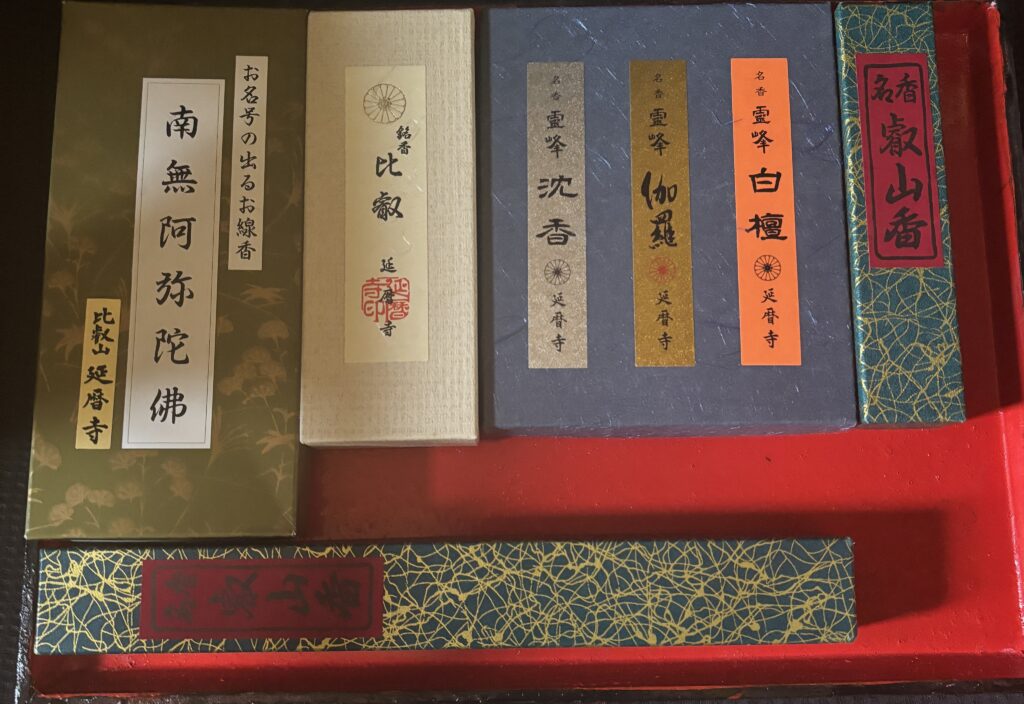 お名号の出るお線香
南無阿弥陀佛
比叡山延暦寺
銘香
比叡
延暦寺
延暦寺印
名香
霊峰
沈香
延暦寺
名香
霊峰
伽羅
延暦寺
名香
霊峰
白檀
延暦寺
名香
叡山香
名香
叡山香